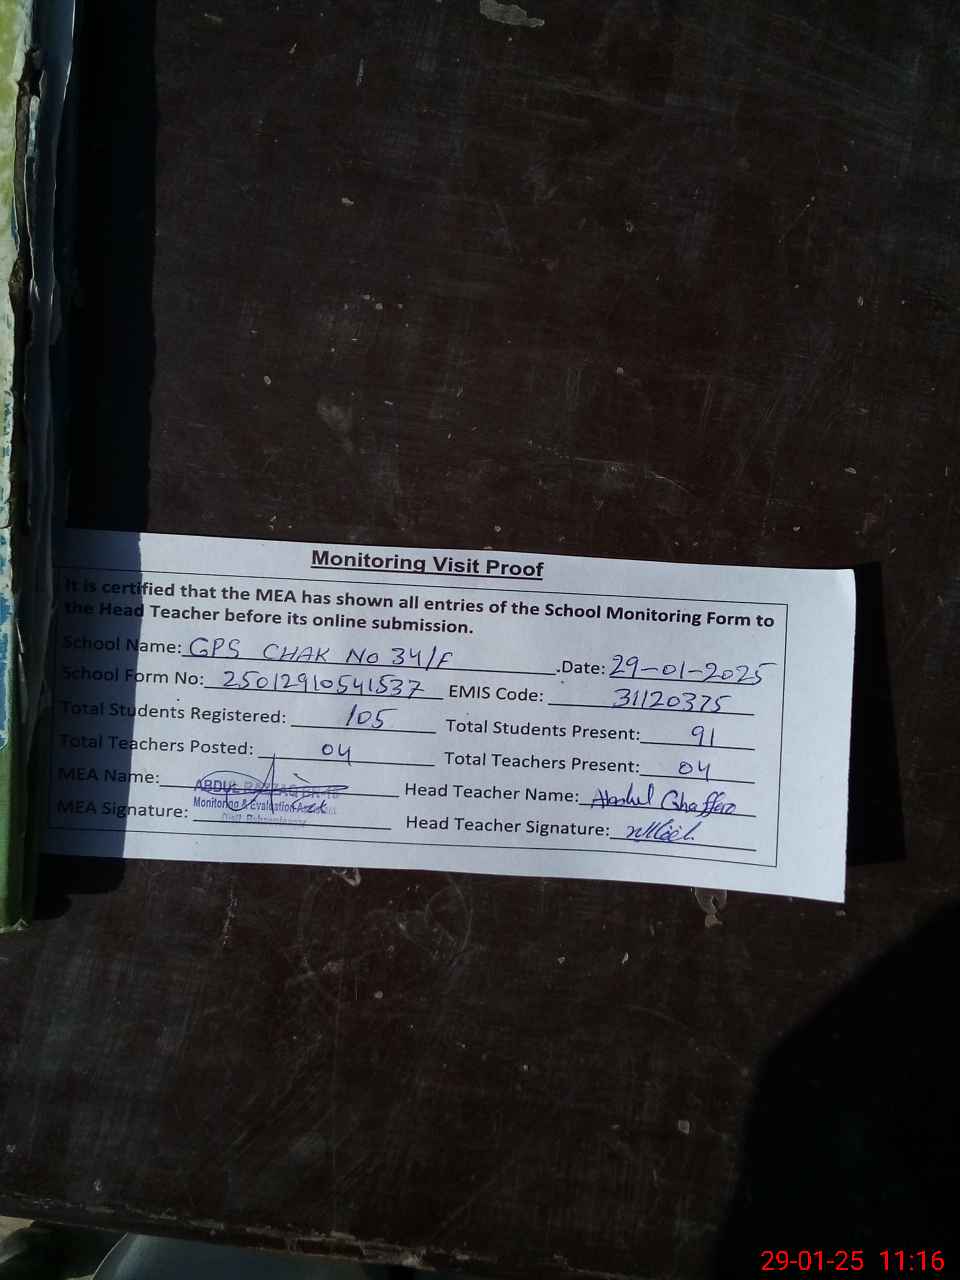 Monitoring Visit Proof
It is certified that the MEA has shown all entries of the School Monitoring Form to
the Head Teacher before its online submission.
School Name: GPS CHAK NO 34/F .Date: 29-01-2025
School Form No: 25012910541537 EMIS Code: 31120375
Total Students Registered: 105 Total Students Present: 91
Total Teachers Posted: 04 Total Teachers Present: 04
MEA Name: ABDUL RAZZAQ Head Teacher Name: Abdul Ghaffar
Monitoring & Evaluation
MEA Signature: Head Teacher Signature:
29-01-25 11:16